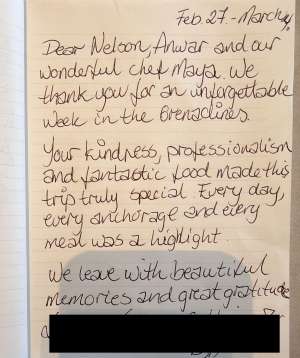 Feb. 27. - March
Dear Nelson, Anwar and our
wonderful chef Maya. We
thank you for an unforgettable
week in the Grenadines.
Your kindness, professionalism
and fantastic food made this
trip truly special. Every day,
every anchorage and every
meal was a highlight.
We leave with beautiful
memories and great gratitude